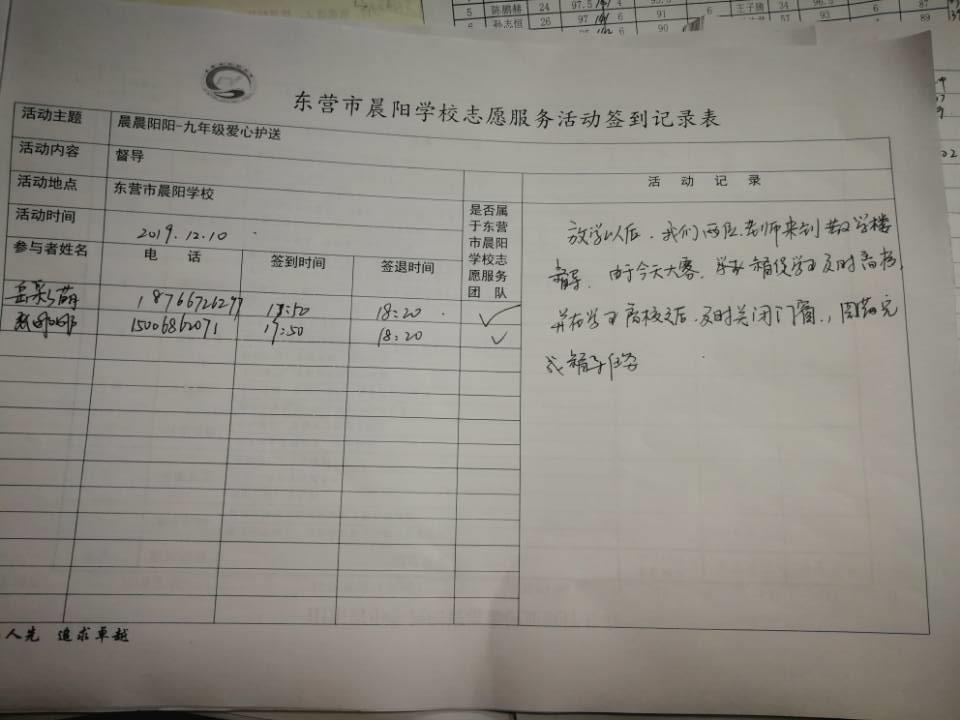 5 陈鹏赫 24 97.5 4
孙志恒 26 97 6 91 6 王子腾 34 96.5 6 87
6 90 57 93 6 89
东营市晨阳学校志愿服务活动签到记录表
活动主题 晨晨阳阳-九年级爱心护送
活动内容 督导
活动地点 东营市晨阳学校
活动时间 2019.12.10
参与者姓名 电 话 签到时间 签退时间
是否属
于东营
市晨阳
学校志
愿服务
团 队
岳彩萌 18766726297 17:50 18:20 ✓
15006862071 17:50 18:20 ✓
活 动 记 录
放学以后,我们两位老师来到教学楼
督导,由于今天大雾,学校督促学生及时离校,
并在学生离校之后,及时关闭门窗,圆满完
成督导任务
人先 追求卓越